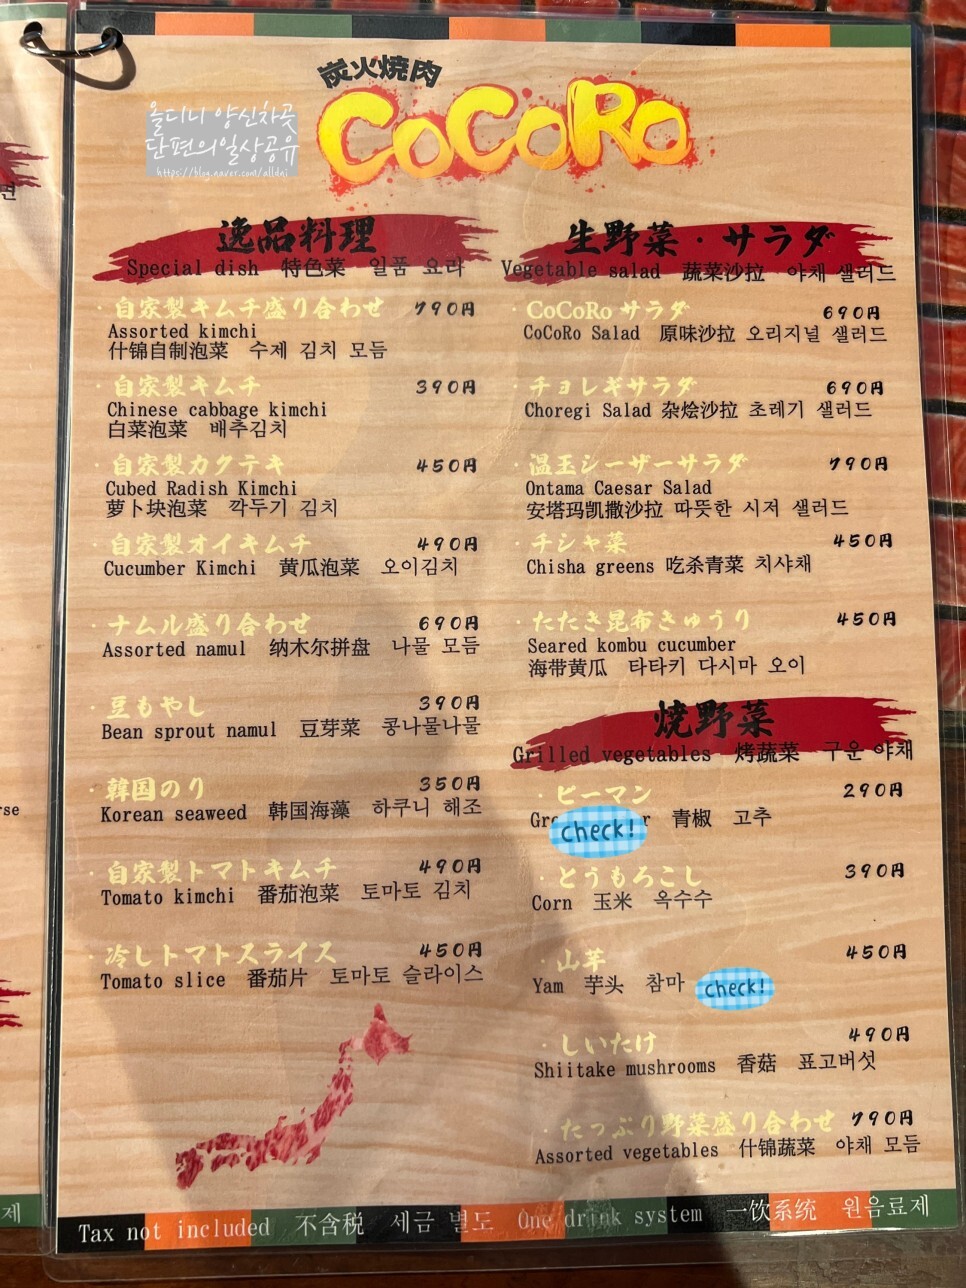 炭火焼肉
CoCoRo
올디니 양신차곳
단편의일상공유
https://blog.naver.com/alldni
逸品料理
Special dish 特色菜 일품 요리
・自家製キムチ盛り合わせ 790円
Assorted kimchi
什锦自制泡菜 수제 김치 모듬
・自家製キムチ 390円
Chinese cabbage kimchi
白菜泡菜 배추김치
・自家製カクテキ 450円
Cubed Radish Kimchi
萝卜块泡菜 깍두기 김치
・自家製オイキムチ 490円
Cucumber Kimchi 黄瓜泡菜 오이김치
・ナムル盛り合わせ 690円
Assorted namul 纳木尔拼盘 나물 모듬
・豆もやし 390円
Bean sprout namul 豆芽菜 콩나물나물
・韓国のり 350円
Korean seaweed 韩国海藻 하쿠니 해조
・自家製トマトキムチ 490円
Tomato kimchi 番茄泡菜 토마토 김치
・冷しトマトスライス 450円
Tomato slice 番茄片 토마토 슬라이스
生野菜・サラダ
Vegetable salad 蔬菜沙拉 야채 샐러드
・CoCoRo サラダ 690円
CoCoRo Salad 原味沙拉 오리지널 샐러드
・チョレギサラダ 690円
Choregi Salad 杂烩沙拉 초레기 샐러드
・温玉シーザーサラダ 790円
Ontama Caesar Salad
安塔玛凯撒沙拉 따뜻한 시저 샐러드
・チシャ菜 450円
Chisha greens 吃杀青菜 치샤채
・たたき昆布きゅうり 450円
Seared kombu cucumber
海带黄瓜 타타키 다시마 오이
焼野菜
Grilled vegetables 烤蔬菜 구운 야채
・ピーマン 290円
check! 青椒 고추
・とうもろこし 390円
Corn 玉米 옥수수
・山芋 450円
Yam 芋头 참마 check!
・しいたけ 490円
Shiitake mushrooms 香菇 표고버섯
・たっぷり野菜盛り合わせ 790円
Assorted vegetables 什锦蔬菜 야채 모듬
Tax not included 不含税 세금 별도 One drink system 一饮系统 원음료제